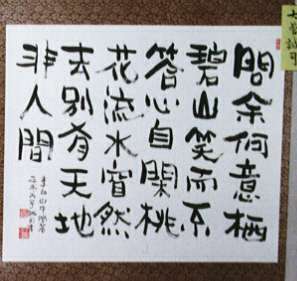 問余何意栖
碧山笑而不
答心自閑桃
花流水窅然
去別有天地
非人間